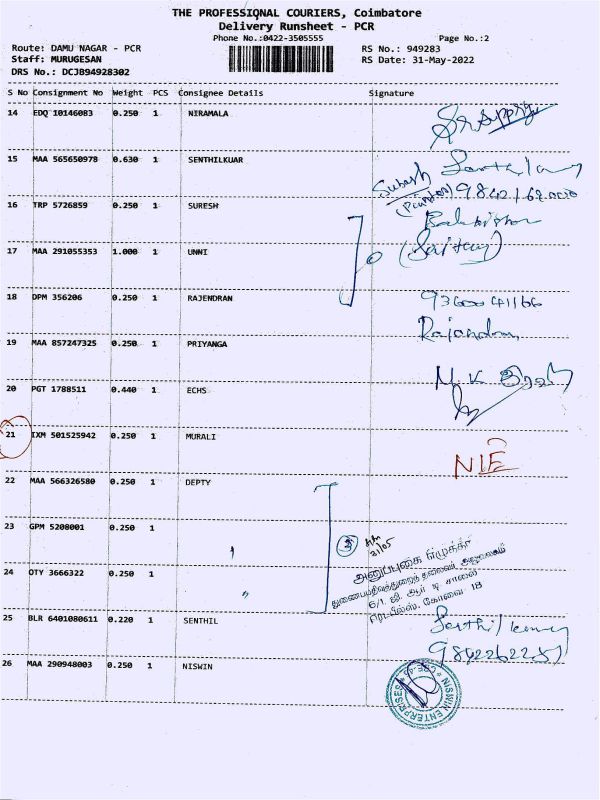 THE PROFESSIONAL COURIERS, Coimbatore
Delivery Runsheet - PCR
Phone No.:0422-3505555
Page No.:2
Route: DAMU NAGAR - PCR
RS No.: 949283
Staff: MURUGESAN
RS Date: 31-May-2022
DRS No.: DCJB94928302
S No Consignment No Weight PCS Consignee Details Signature
14 EDQ 10146083 0.250 1 NIRAMALA
15 MAA 565650978 0.630 1 SENTHILKUAR
Subash
16 TRP 5726859 0.250 1 SURESH
17 MAA 291055353 1.000 1 UNNI
18 DPM 356206 0.250 1 RAJENDRAN
Rajendran
19 MAA 857247325 0.250 1 PRIYANGA
M.K
20 PGT 1788511 0.440 1 ECHS
21 IXM 501525942 0.250 1 MURALI
NIE
22 MAA 566326580 0.250 1 DEPTY
23 GPM 5208001 0.250 1
3
31/05
அனுப்புகை எழுத்தர்
24 OTY 3666322 0.250 1 "
துணைப்பதிவுத்துறைத் தலைவர் அலுவலகம்
6/1, ஜி. ஆர் டி சாலை
கோவை 18
25 BLR 6401080611 0.220 1 SENTHIL
Senthil kumar
26 MAA 290948003 0.250 1 NISWIN
NISWIN ENTERPRISES
CBE